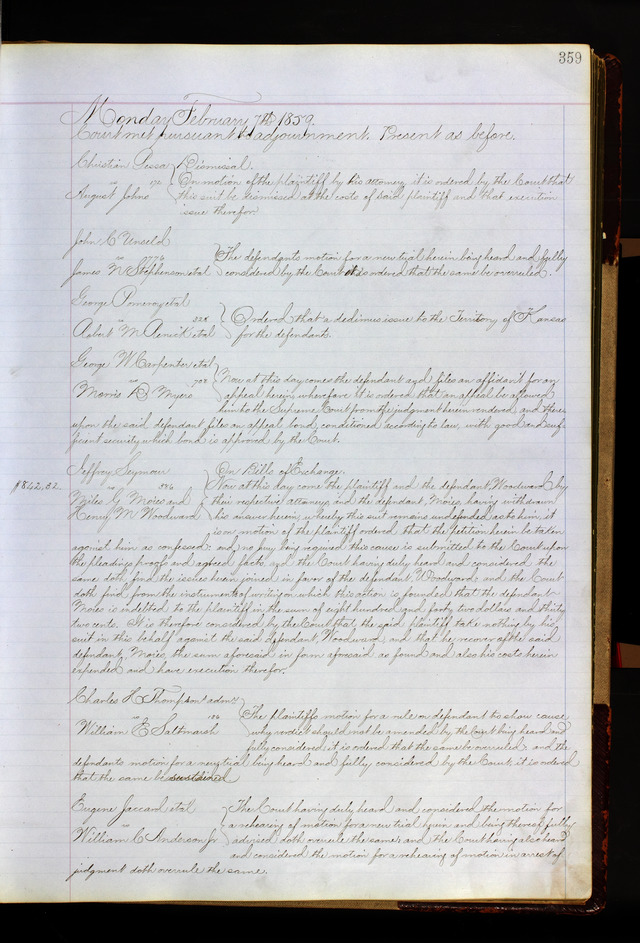 359
Monday February 7th 1859.
Court met pursuant to adjournment. Present as before.
Christian Pessa } Dismissal.
vs
August Johns } On motion of the plaintiff by his attorney it is ordered by the Court that
this suit be dismissed at the costs of said plaintiff and that execution
issue therefor.
John C Unseld
vs 776
James N Stephenson etal } The defendants motion for a new trial herein being heard and fully
considered by the Court it is ordered that the same be overruled.
George Pomeroy etal
vs 328
Robert M Renick etal } Ordered that a dedimus issue to the Territory of Kansas
for the defendants.
George W Carpenter etal
vs 702
Morris D Myers } Now at this day comes the defendant and files an affidavit for an
appeal herein, wherefore it is ordered that an appeal be allowed
him to the Supreme Court from the judgment herein rendered, and there
upon the said defendant files an appeal bond, conditioned according to law, with good and suf
ficient security which bond is approved by the Court.
Jeffrey Seymour } On Bills of Exchange.
$842,32
vs 576
Miles G Moies and
Henry M Woodward } Now at this day come the plaintiff and the defendant Woodward by
their respective attorneys, and the defendant, Moies, having withdrawn
his answer herein, whereby this suit remains undefended as to him, it
is on motion of the plaintiff ordered that the petition herein be taken
against him as confessed; and no jury being required this cause is submitted to the Court upon
the pleadings proofs and agreed facts, and the Court having duly heard and considered the
same doth find the issues herein joined in favor of the defendant, Woodward and the Court
doth find from the instruments of writing on which this action is founded that the defendant
Moies is indebted to the plaintiff in the sum of eight hundred and forty two dollars and thirty
two cents. It is therefore considered by the Court that the said plaintiff take nothing by his
suit in this behalf against the said defendant, Woodward, and that he recover of the said
defendant, Moies, the sum aforesaid in form aforesaid as found and also his costs herein
expended and have execution therefor.
Charles H Thompsons admr
vs
William E Saltmarsh } The plaintiffs motion for a rule on defendant to show cause
why verdict should not be amended by the Court being heard and
fully considered, it is ordered that the same be overruled, and the
defendants motion for a new trial being heard and fully considered by the Court, it is ordered
that the same be sustained
Eugene Jaccard etal
vs
William C Anderson Jr } The Court having duly heard and considered the motion for
a rehearing of motion for a new trial herein and being thereof fully
advised doth overrule the same, and the Court having also heard
and considered the motion for a rehearing of motion in arrest of
judgment doth overrule the same.